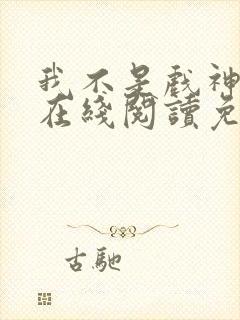 我不是戲神
在綫閱讀免
古馳